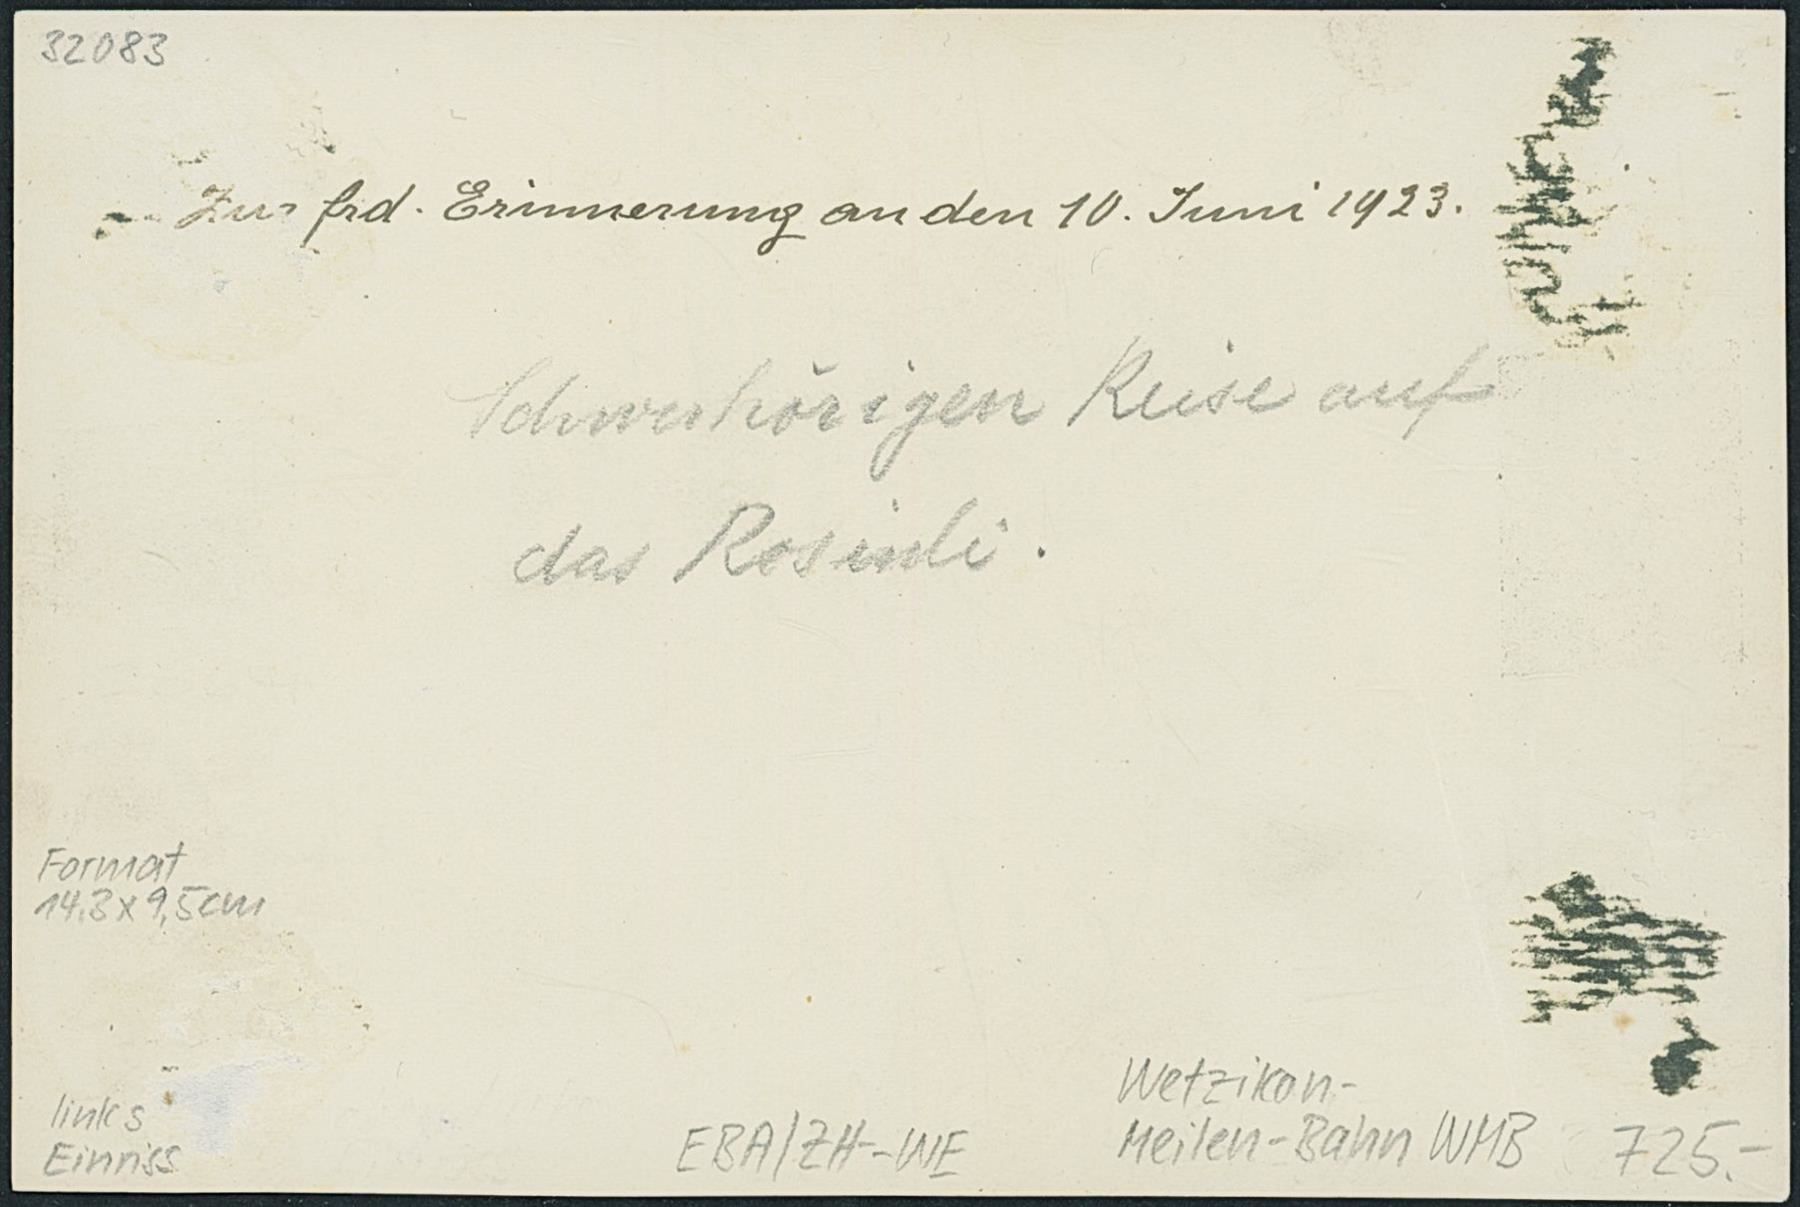 32083
Zur frd. Erinnerung an den 10. Juni 1923.
Schwerhörigen Reise auf
das Rosinli.
Format
14,3 x 9,5cm
links
Einriss
EBA/ZH-WE
Wetzikon-
Meilen-Bahn WMB
725.-